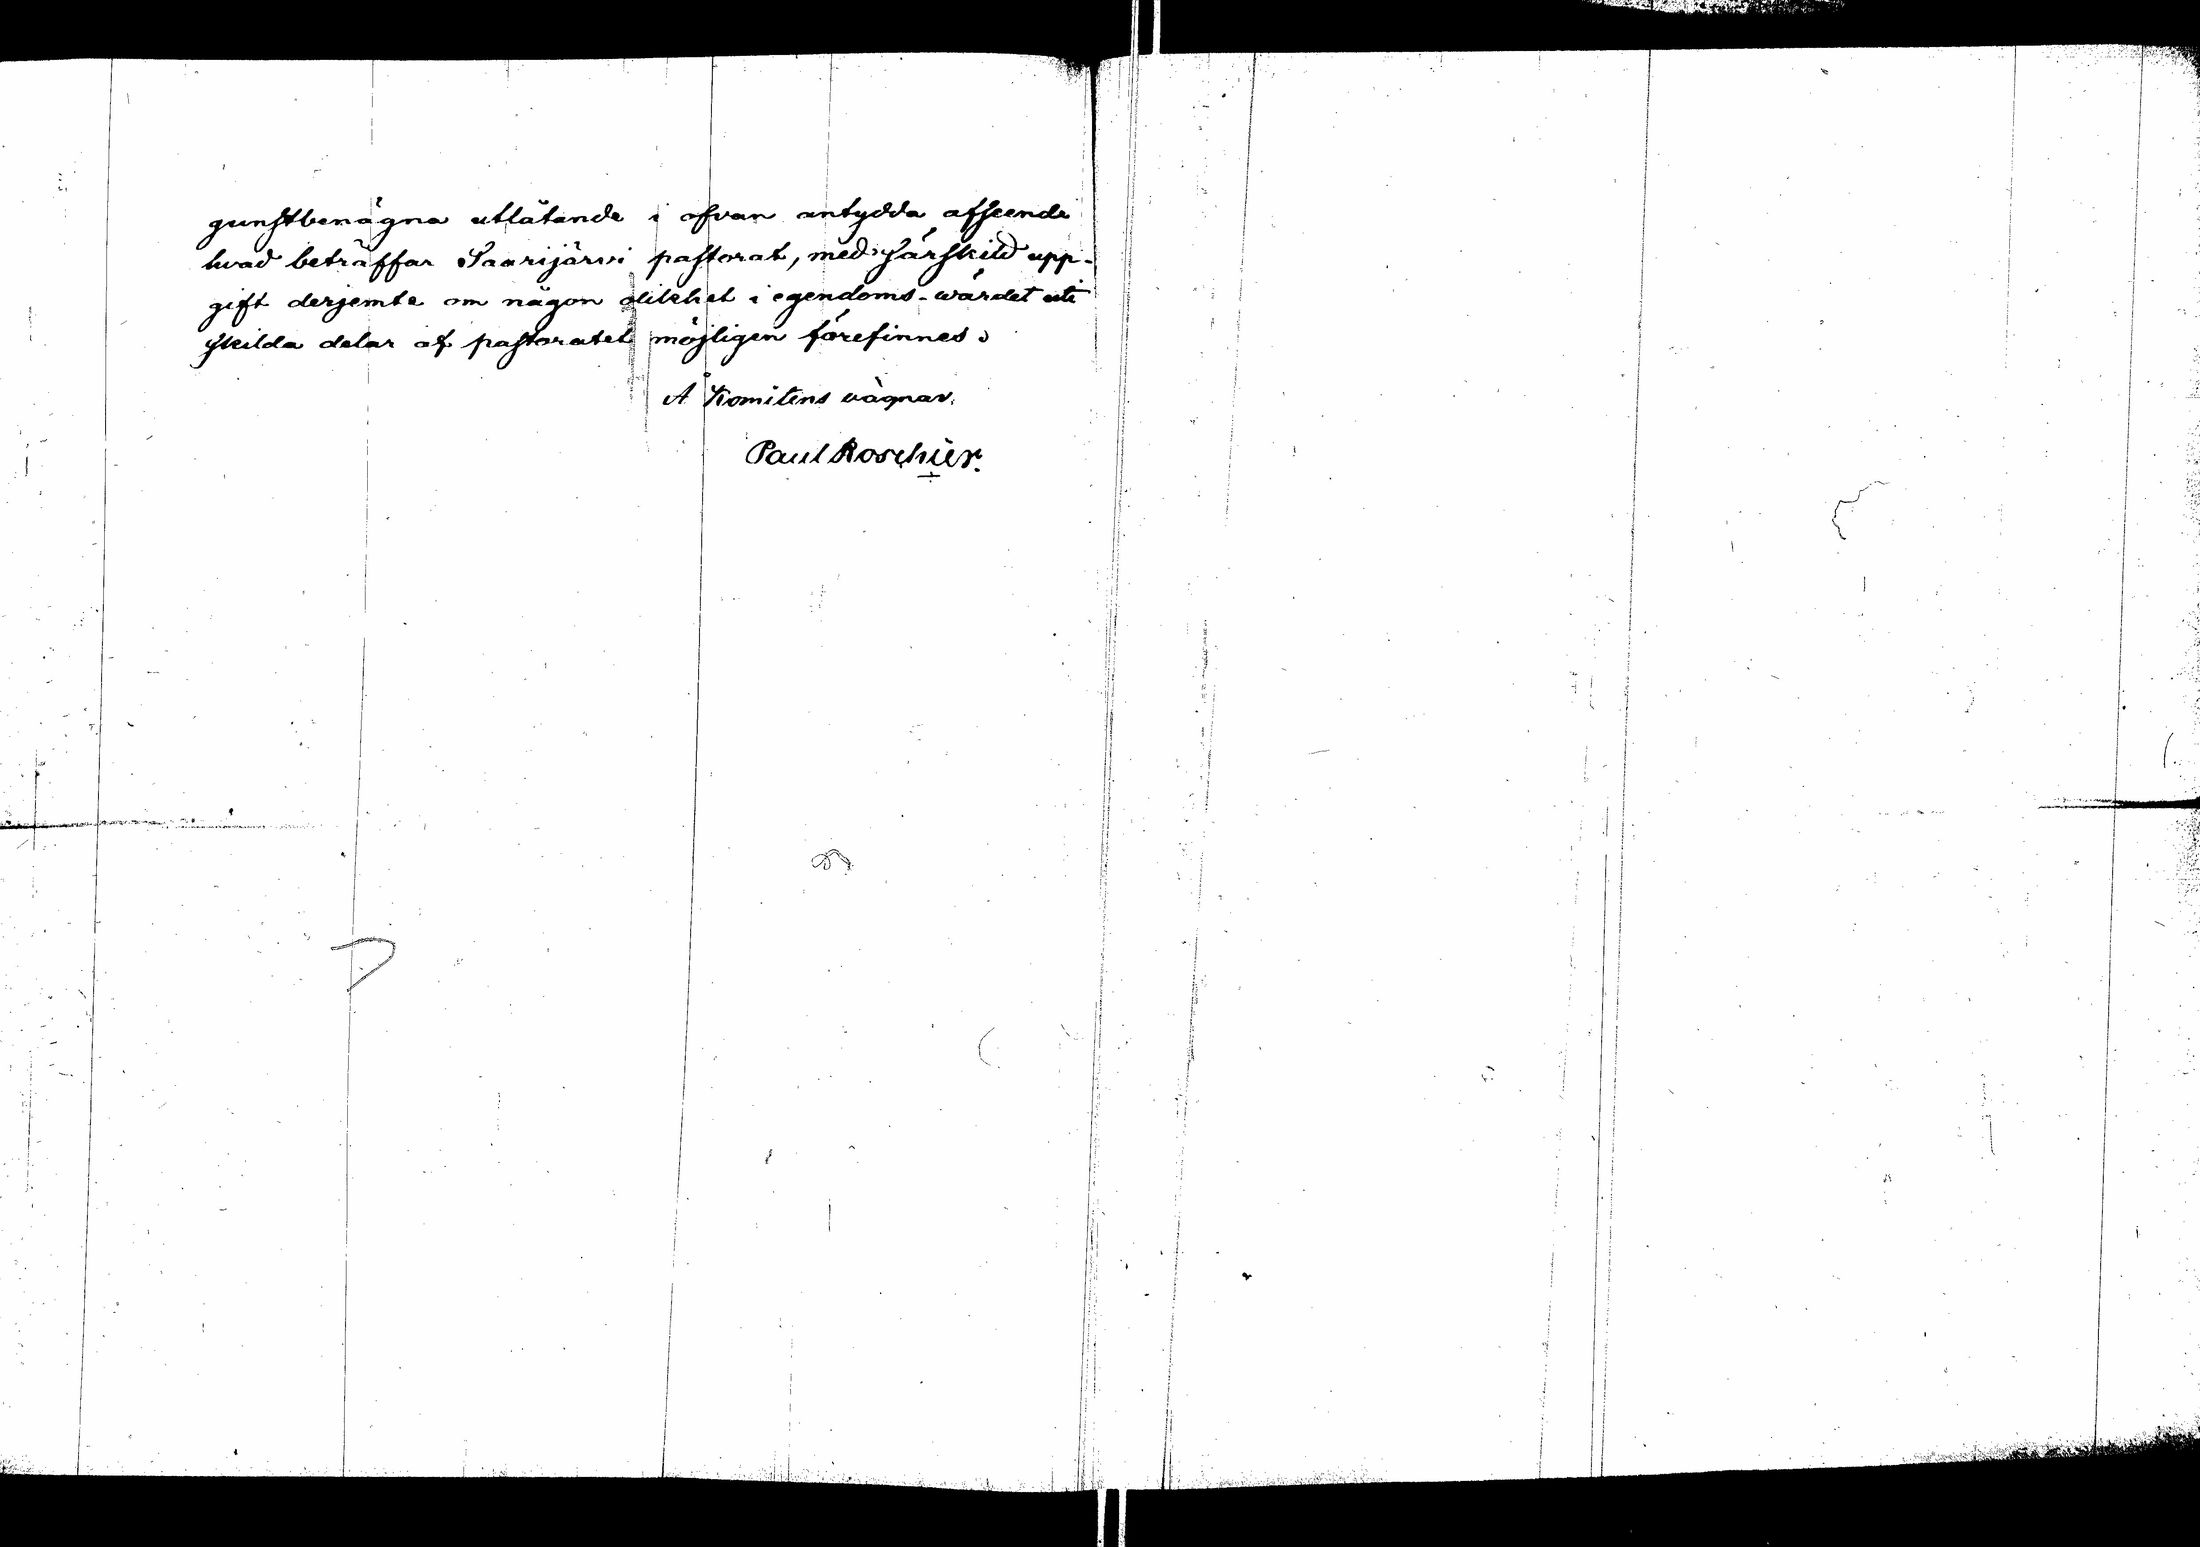 gunstbenägna utlåtande i ofvan antydda afseende
hvad beträffar Saarijärvi pastorat, med särskild upp-
gift derjemte om någon olikhet i egendoms-wärdet uti
skilda delar af pastoratet möjligen förefinnes.
Å Komiténs vägnar:
Paul Roschier.